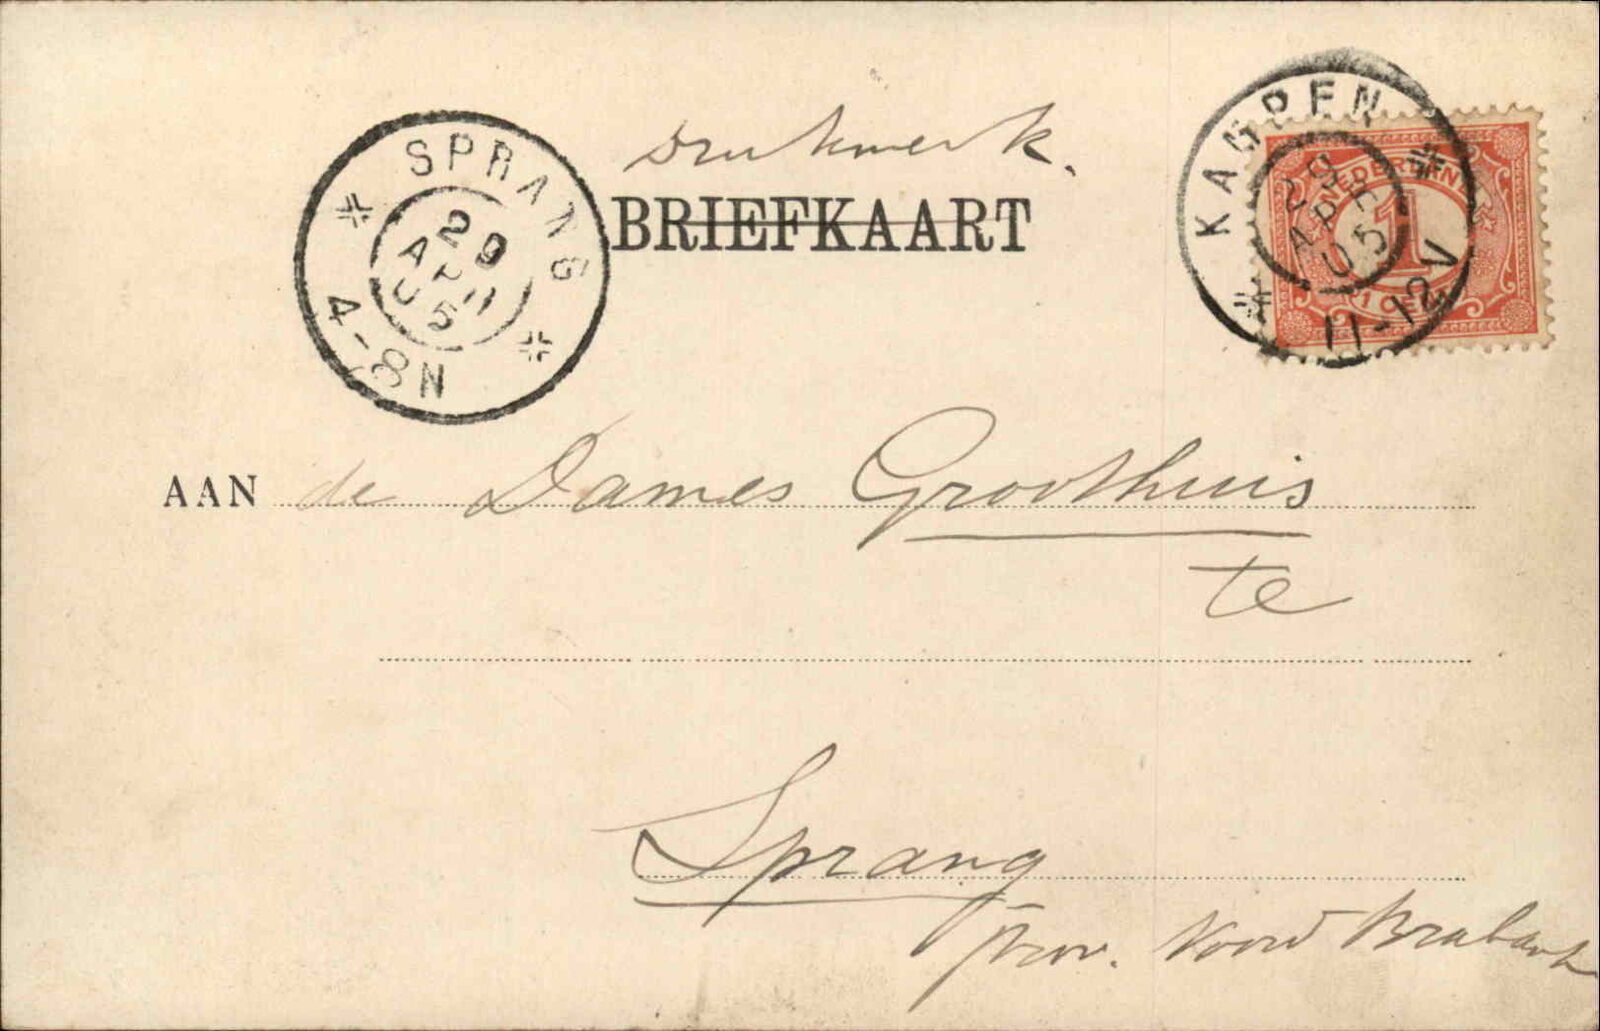 Drukwerk.
BRIEFKAART
SPRANG
29
APR
05
4-8N
KAMPEN
29
APR
05
11-12V
NEDERLAND
1
1 CENT
AAN de Dames Groothuis
te
Sprang
prov. Noord Brabant